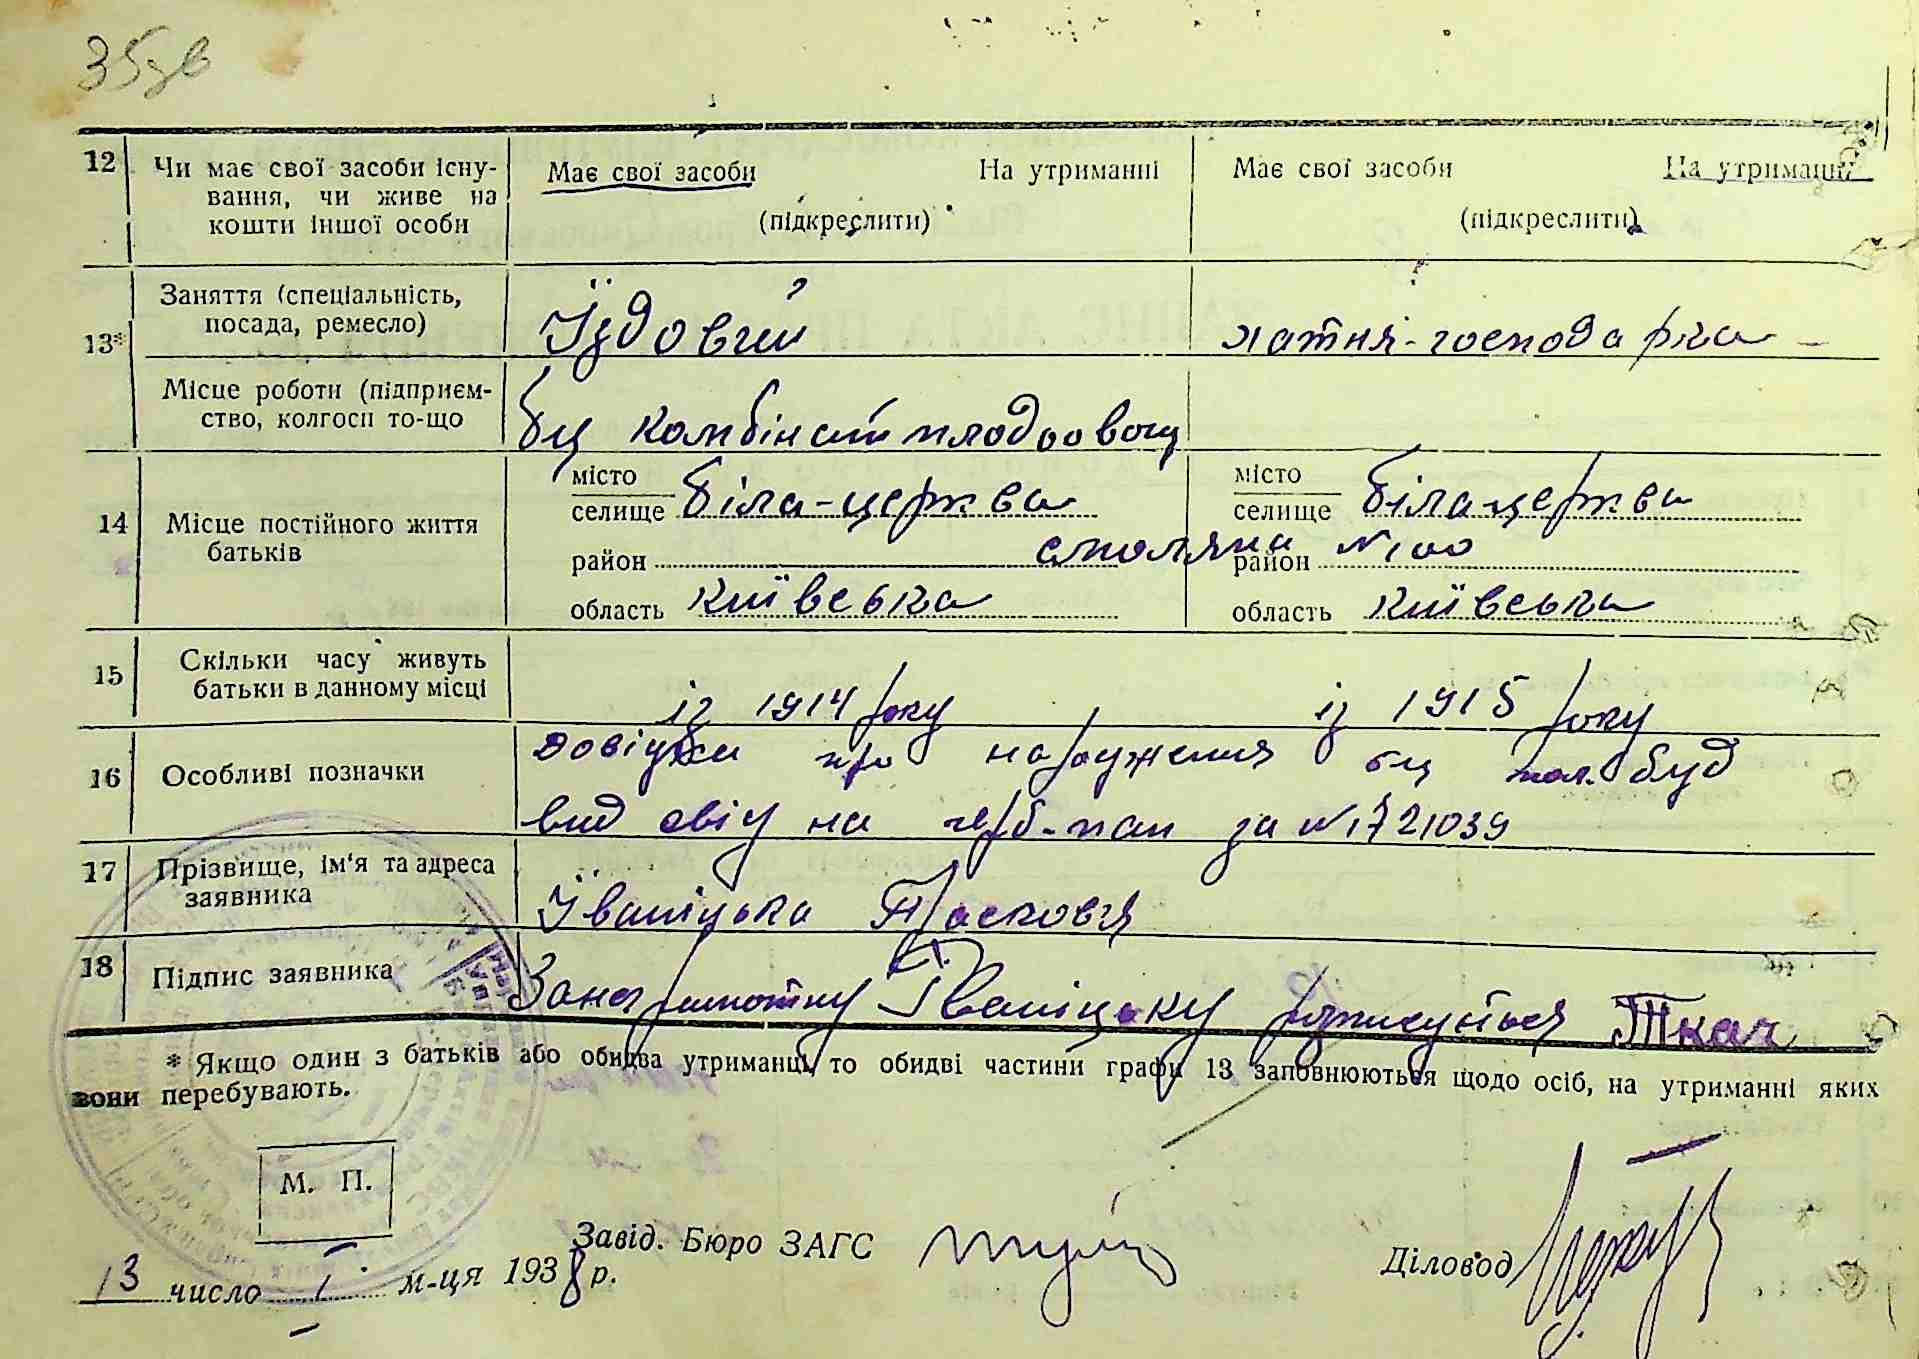 12 Чи має свої засоби існу-
вання, чи живе на
кошти іншої особи
Має свої засоби На утриманні
(підкреслити)
Має свої засоби На утриманні
(підкреслити)
13*
Заняття (спеціальність,
посада, ремесло)
Їздовий
хатня-господарка
Місце роботи (підприєм-
ство, колгосп то-що
бц комбінат плодоовощ
14 Місце постійного життя
батьків
місто
селище Біла-церква
район
область Київська
місто
селище Біла церква
смоляна № 100
район
область Київська
15 Скільки часу живуть
батьки в данному місці
із 1914 року
із 1915 року
16 Особливі позначки
довідка про народження бц пол. буд
вид свід на герб-пап за № 1721039
17 Прізвище, ім'я та адреса
заявника
Їваніцька Парасковія
18 Підпис заявника
За неграмотну Іваніцьку підписується Ткач
* Якщо один з батьків або обидва утриманці, то обидві частини графи 13 заповнюються щодо осіб, на утриманні яких
вони перебувають.
М. П.
Завід. Бюро ЗАГС
Діловод
13 число І м-ця 1938 р.